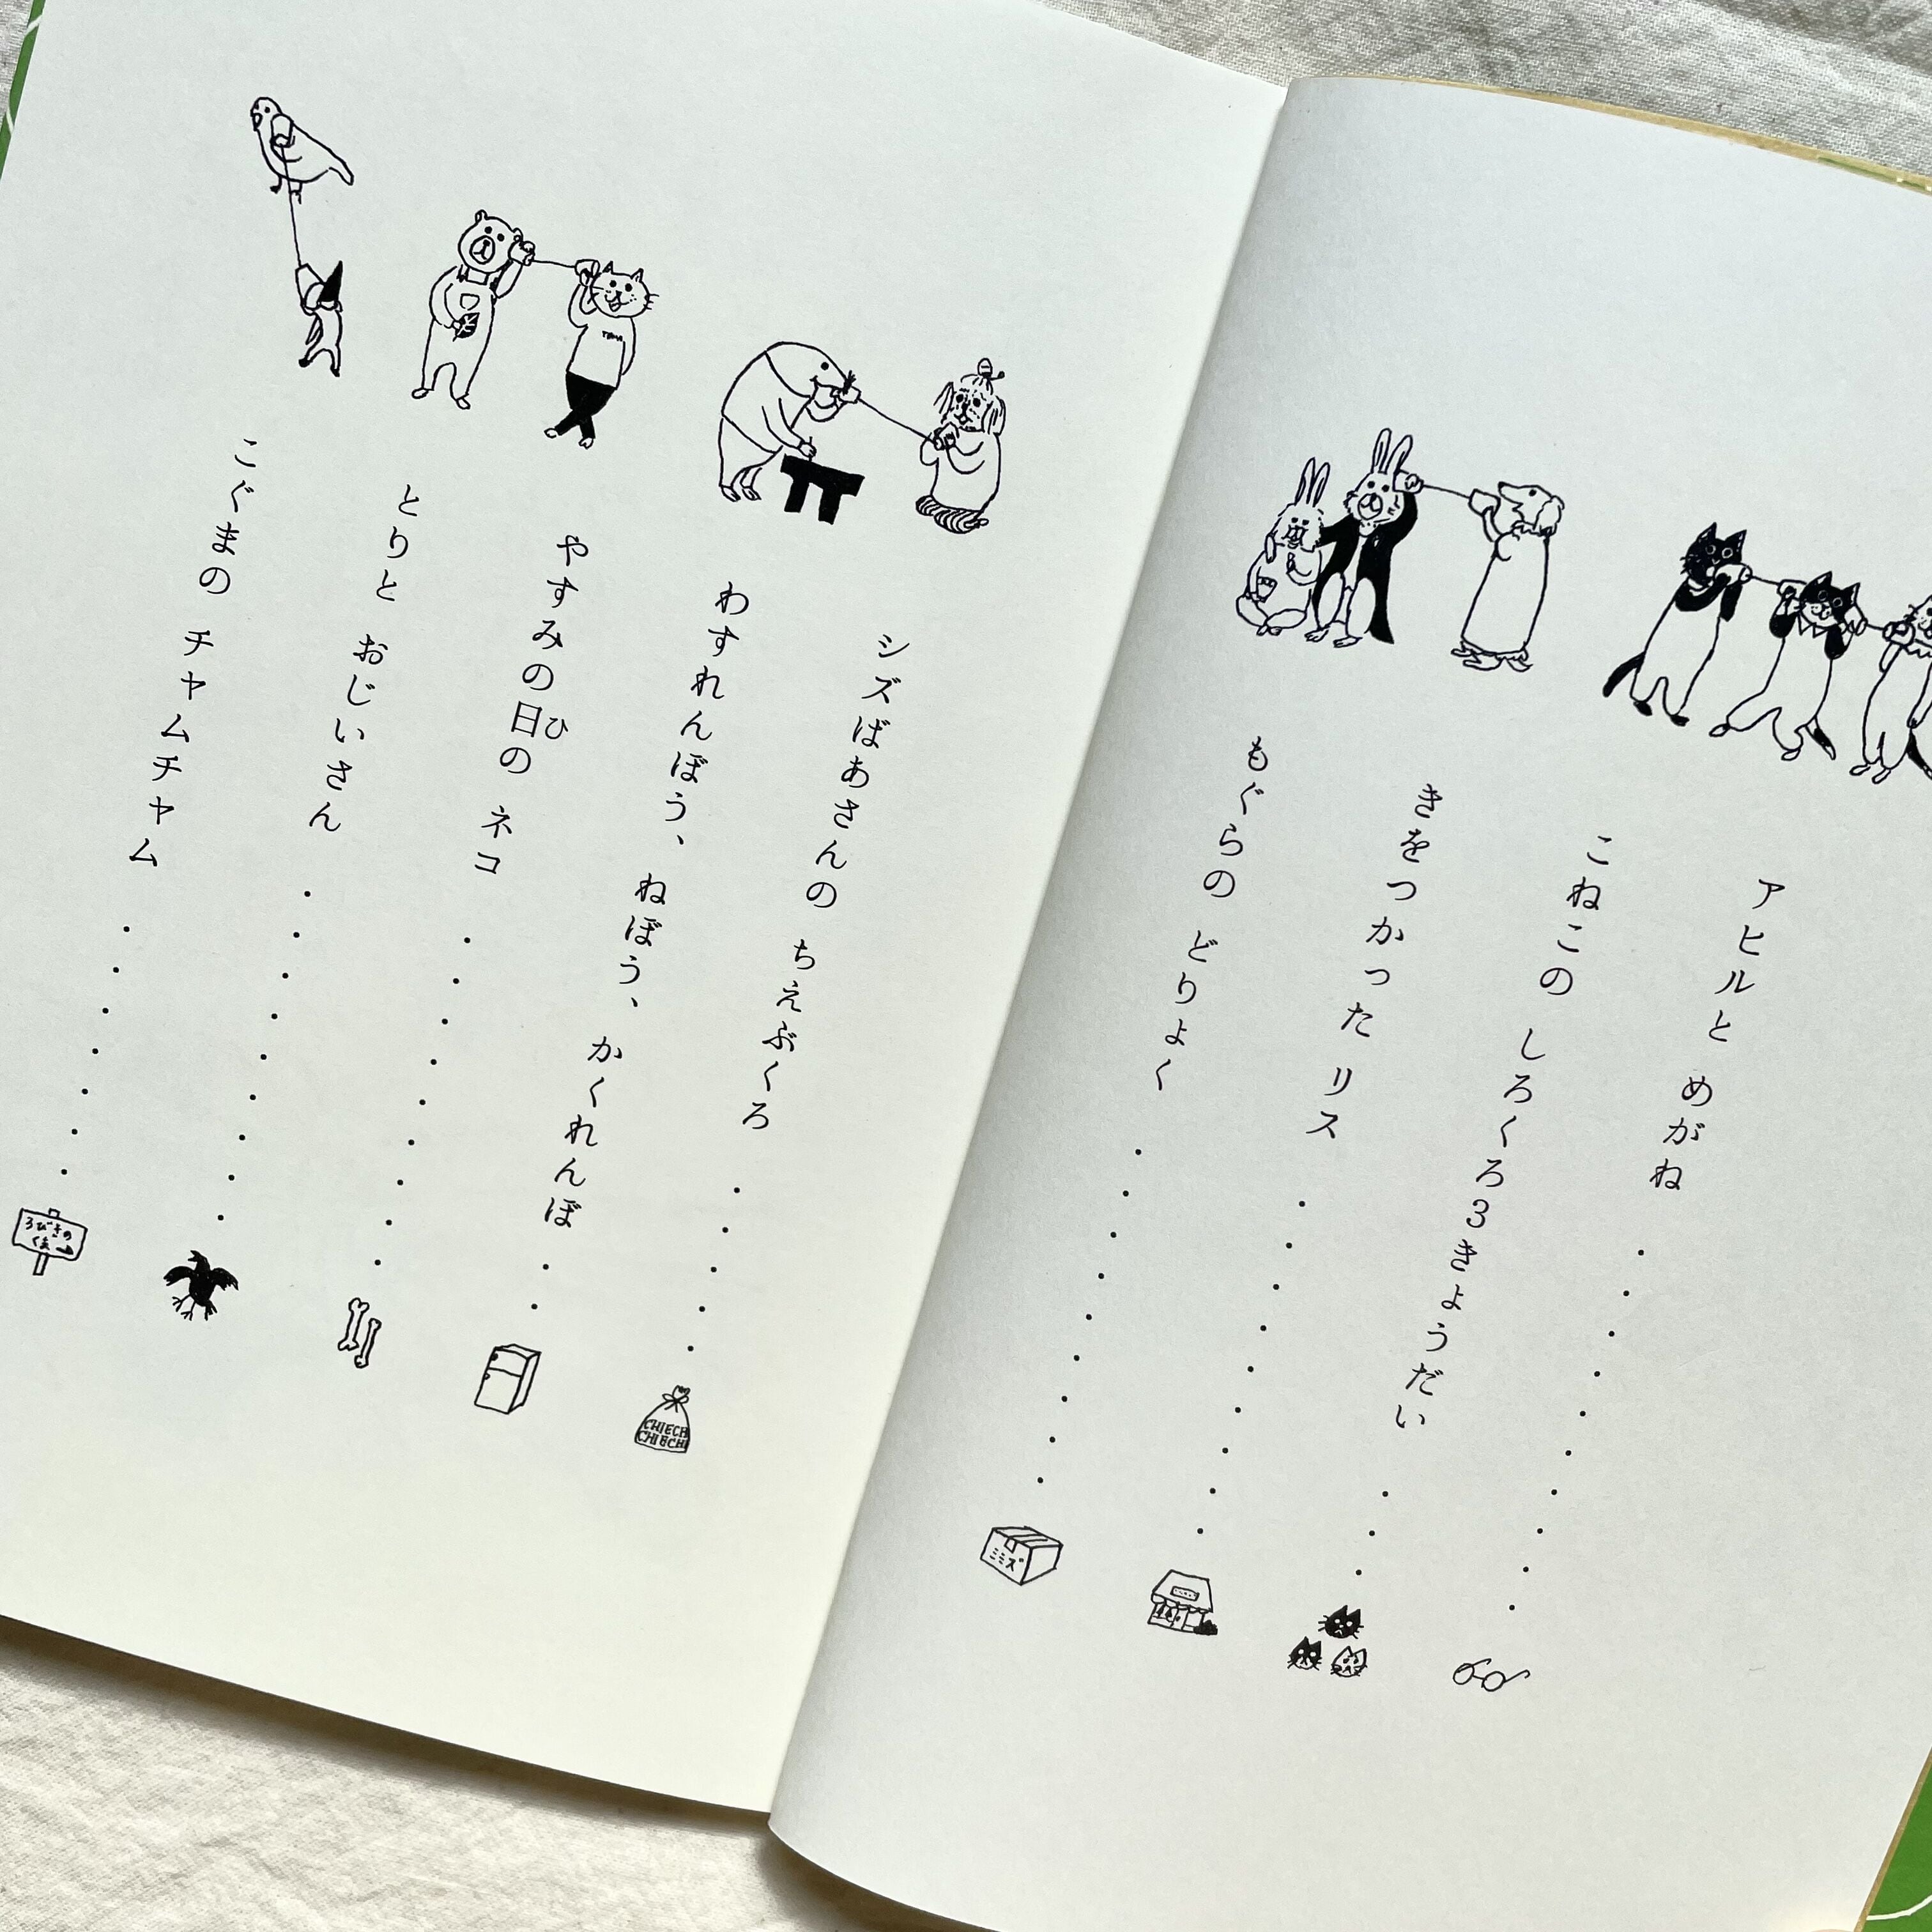 アヒルと めがね
こねこの しろくろ3きょうだい
きをつかった リス
もぐらの どりょく
ミミズ
シズばあさんの ちえぶくろ
わすれんぼう、ねぼう、かくれんぼ
やすみの日の ネコ
ひ
とりと おじいさん
こぐまの チャムチャム
CHIECH
CHIECHI